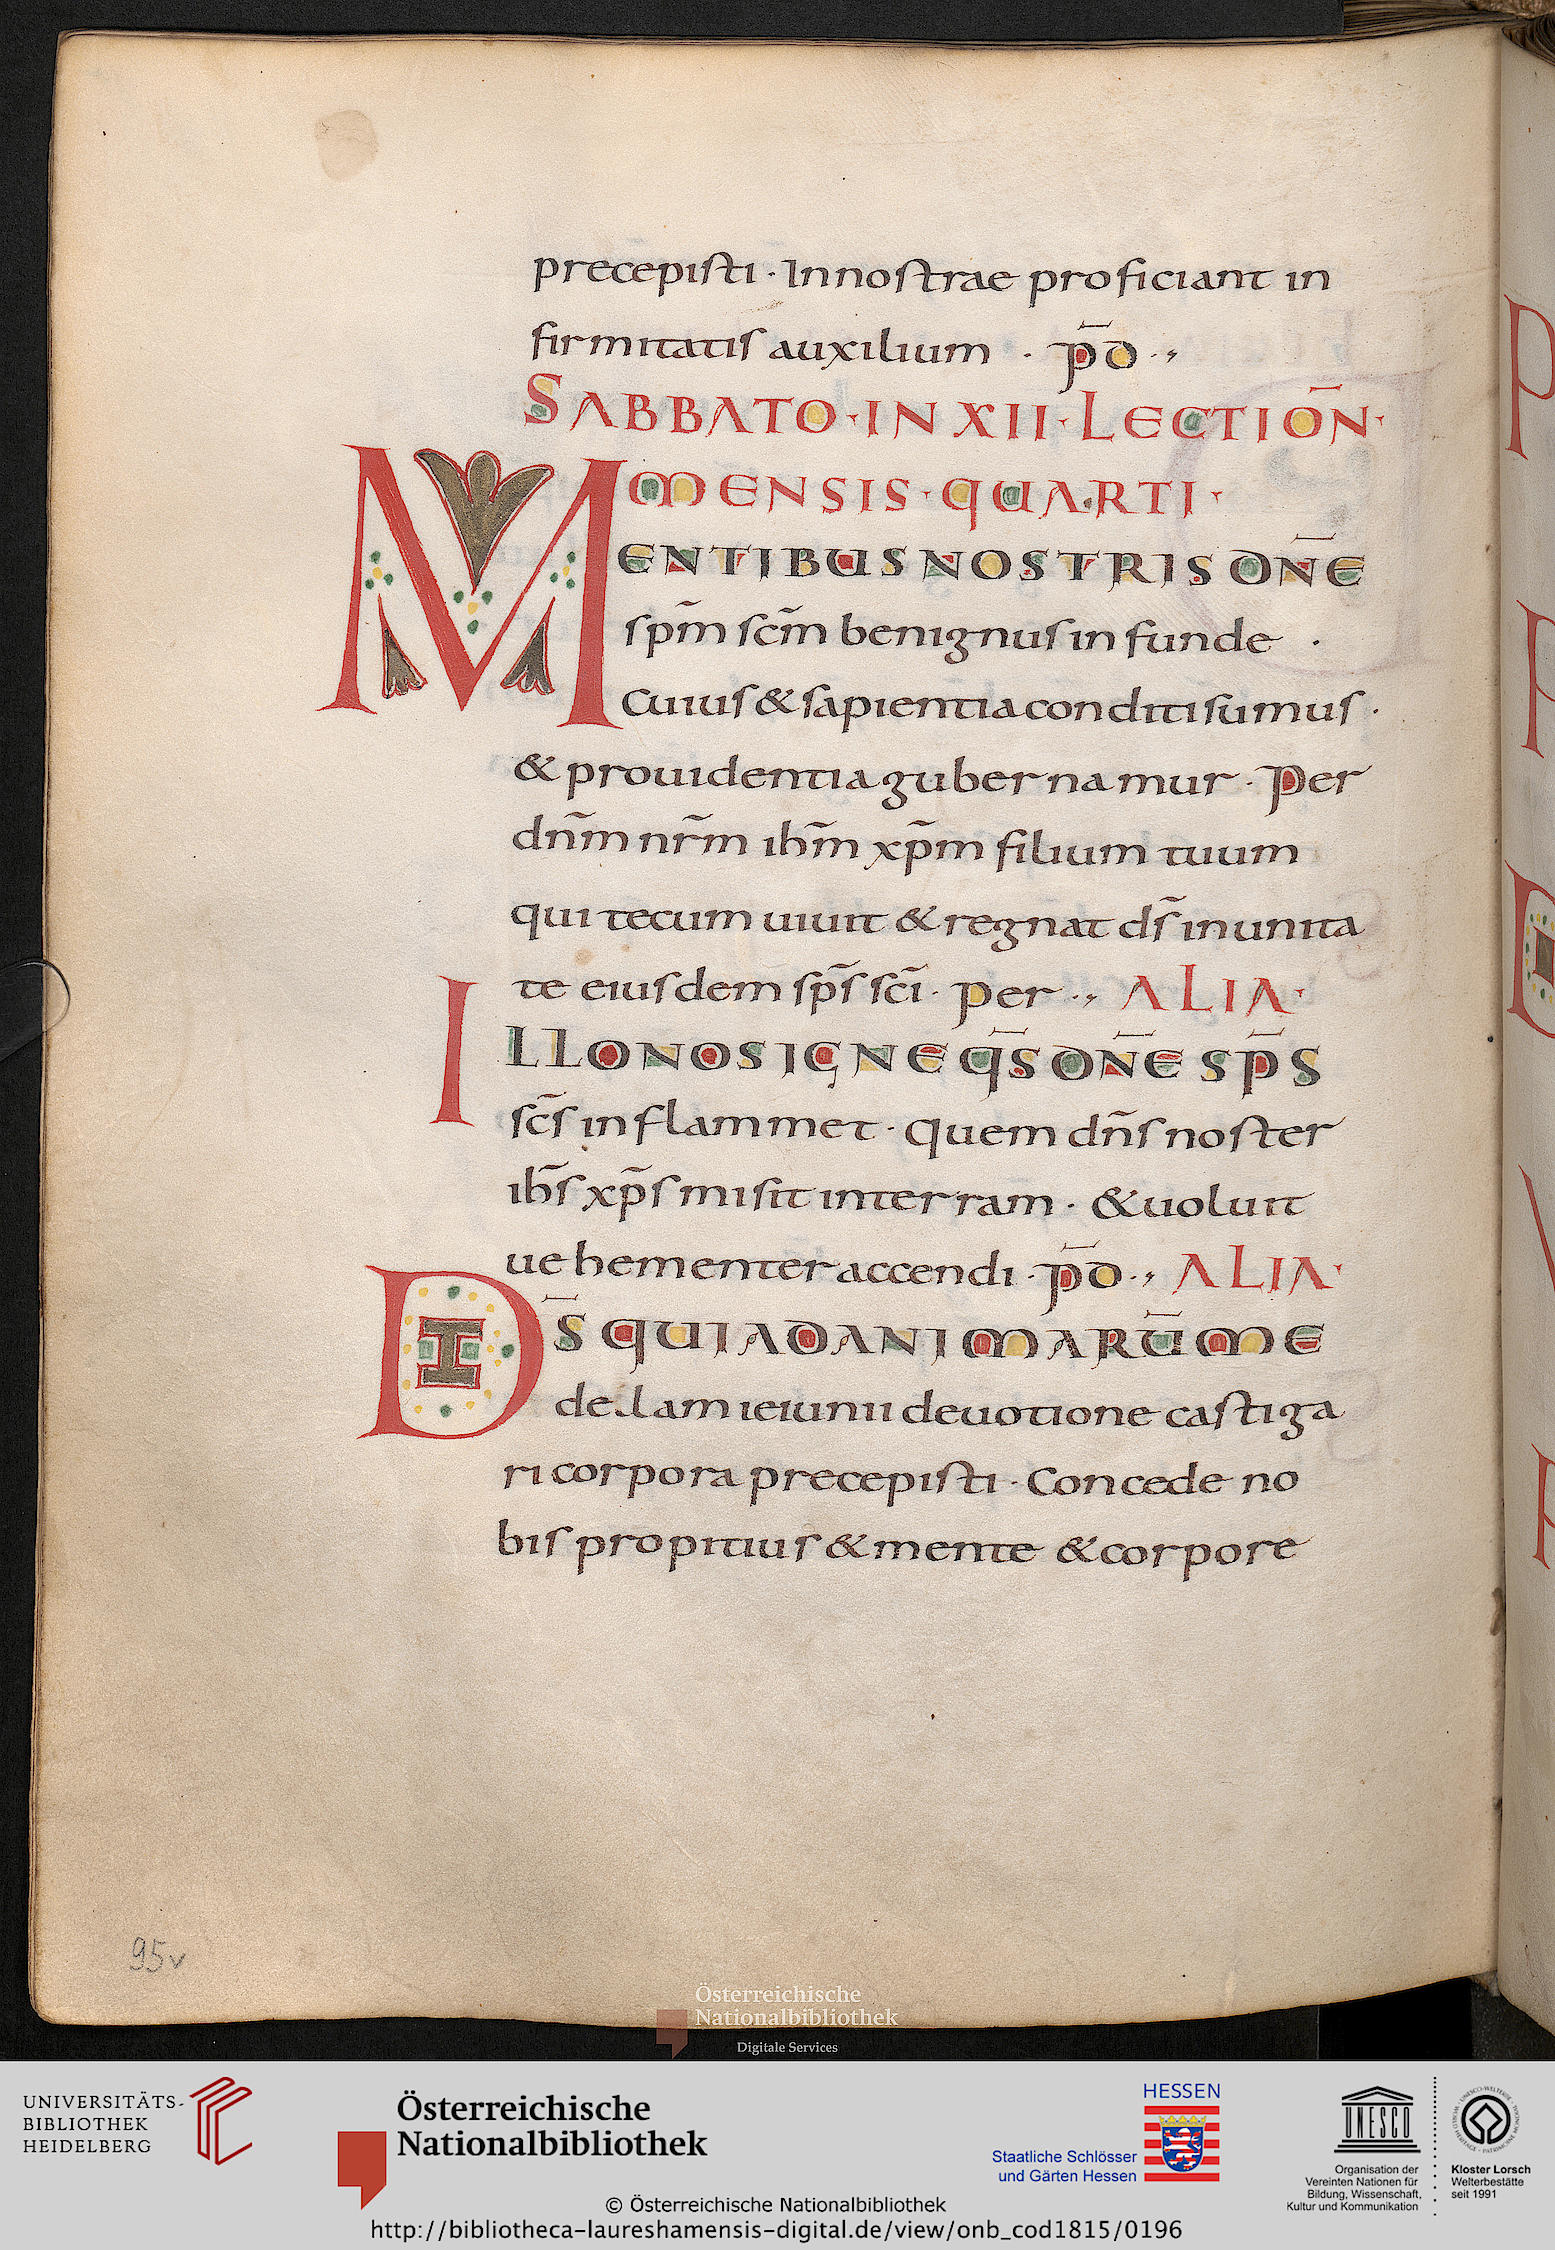 precepisti · In nostrae proficiant in
firmitatis auxilium · p̄d ·,
SABBATO · IN XII · LECTIOÑ ·
MENSIS · QUARTI ·
MENTIBUS NOSTRIS DN̄E
sp̄m sc̄m benignus infunde ·
Cuius & sapientia conditi sumus ·
& prouidentia gubernamur · Per
dn̄m nr̄m ihm̄ xp̄m filium tuum
qui tecum uiuit & regnat ds̄ in unita
te eiusdem sp̄s sc̄i · per ·, ALIA ·
ILLO NOS IGNE QS̄ DN̄E SP̄S
sc̄s inflammet · quem dn̄s noster
ihs̄ xp̄s misit in terram · & uoluit
uehementer accendi · p̄d ·, ALIA ·
DS̄ QUI AD ANIMARŪ ME
delam ieiunii deuotione castiga
ri corpora precepisti · Concede no
bis propitius & mente & corpore
95v
Österreichische
Nationalbibliothek
Digitale Services
UNIVERSITÄTS-
BIBLIOTHEK
HEIDELBERG
Österreichische
Nationalbibliothek
HESSEN
Staatliche Schlösser
und Gärten Hessen
UNESCO
Organisation der
Vereinten Nationen für
Bildung, Wissenschaft,
Kultur und Kommunikation
Kloster Lorsch
Welterbestätte
seit 1991
© Österreichische Nationalbibliothek
http://bibliotheca-laureshamensis-digital.de/view/onb_cod1815/0196